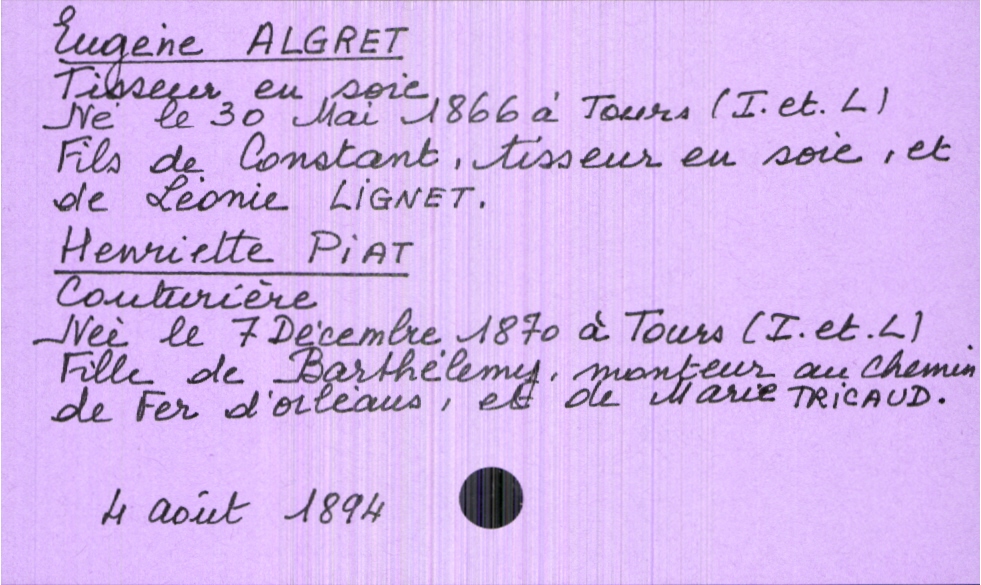 Eugène ALGRET
Tisseur en soie
Né le 30 Mai 1866 à Tours (I. et. L)
Fils de Constant, tisseur en soie, et
de Léonie LIGNET.
Henriette PIAT
Couturière
Née le 7 Décembre 1870 à Tours (I. et. L)
Fille de Barthélemy, monteur au Chemin
de Fer d'orléans, et de Marie TRICAUD.
4 août 1894